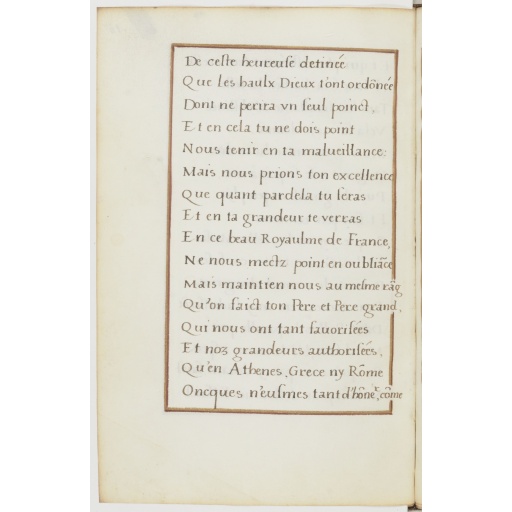 De ceste heureuse detinéé
Que les haulx Dieux t'ont ordõnéé
Dont ne perira vn seul poinct,
Et en cela tu ne dois point
Nous tenir en ta malueillance:
Mais nous prions ton excellence
Que quant pardela tu seras
Et en ta grandeur te verras
En ce beau Royaulme de France,
Ne nous mectz point en oubliãce
Mais maintien nous au mesme rãg
Qu'on faict ton Pere et Pere grand,
Qui nous ont tant fauorisées
Et noz grandeurs authorisées,
Qu'en Athenes, Grece ny Rõme
Oncques n'eusmes tant d'hõne<sup>r</sup>, cõme